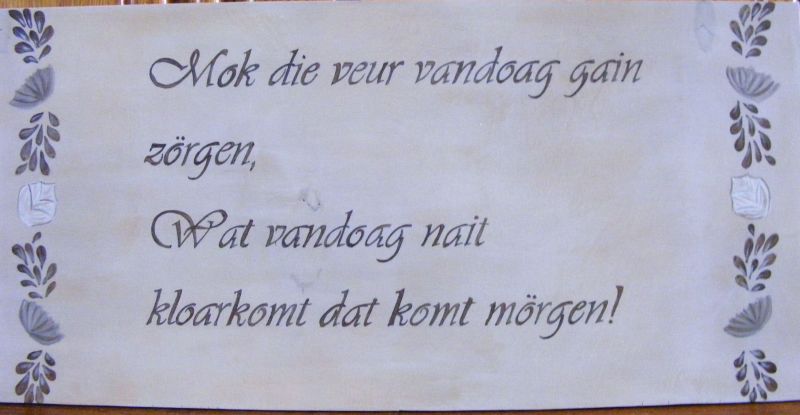 Mok die veur vandoag gain
zörgen,
Wat vandoag nait
kloarkomt dat komt mörgen!